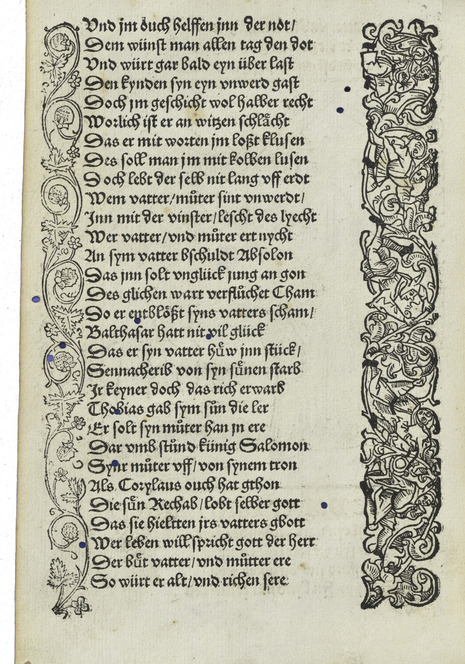 Vnd jm öuch helffen jnn der not/
Dem wünst man allen tag den dot
Vnd würt gar bald eyn über last
Den kynden syn eyn vnwerd gast
Doch jm geschicht wol halber recht
Worlich ist er an witzen schlächt
Das er mit worten jm loßt klusen
Des soll man jm mit kolben lusen
Doch lebt der selb nit lang vff erdt
Wem vatter/ můter sint vnwerdt/
Jnn mit der vinster/ lescht des lyecht
Wer vatter/ vnd můter ert nycht
An sym vatter bschuldt Absolon
Das jnn solt vnglück jung an gon
Des glichen wart verflůchet Cham
Do er entblößt syns vatters scham/
Balthasar hatt nit vil glück
Das er syn vatter hüw jnn stück/
Sennacherib von syn sünen starb
Jr keyner doch das rich erwarb
Thobias gab sym sůn die ler
Er solt syn můter han jn ere
Dar vmb stůnd künig Salomon
Syner můter vff/ von synem tron
Als Corylaus ouch hat gthon
Die sün Rechab/ lobt selber gott
Das sie hieltten jrs vatters gbott
Wer leben will spricht gott der herr
Der büt vatter/ vnd můtter ere
So würt er alt/ vnd richen sere